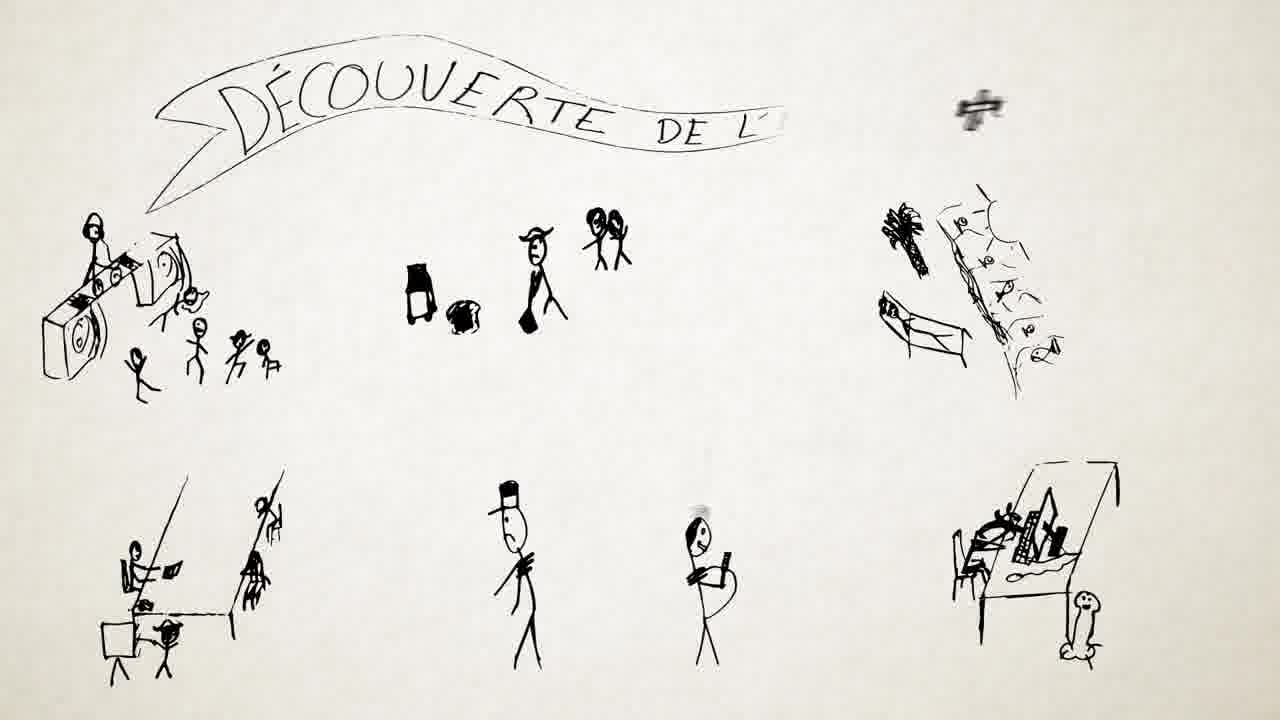 DÉCOUVERTE DE L'